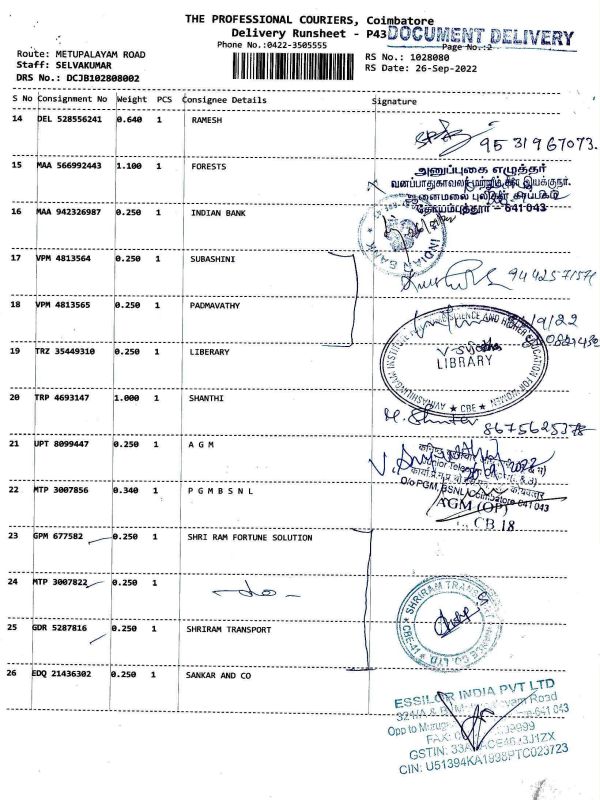 THE PROFESSIONAL COURIERS, Coimbatore
Delivery Runsheet - P43
DOCUMENT DELIVERY
Phone No.:0422-3505555
Page No.:2
Route: METUPALAYAM ROAD
Staff: SELVAKUMAR
DRS No.: DCJB102808002
RS No.: 1028080
RS Date: 26-Sep-2022
S No Consignment No Weight PCS Consignee Details Signature
14 DEL 528556241 0.640 1 RAMESH
9531967073.
15 MAA 566992443 1.100 1 FORESTS
அனுப்புகை எழுத்தர்
கோயம்புத்தூர் - 641 043
16 MAA 942326987 0.250 1 INDIAN BANK
INDIAN BANK
17 VPM 4813564 0.250 1 SUBASHINI
18 VPM 4813565 0.250 1 PADMAVATHY
19 TRZ 35449310 0.250 1 LIBERARY
SCIENCE AND HIGHER EDUCATION FOR WOMEN
AVINASHILINGAM INSTITUTE
LIBRARY
CBE
20 TRP 4693147 1.000 1 SHANTHI
21 UPT 8099447 0.250 1 A G M
O/o PGM, BSNL, Coimbatore-641 043
22 MTP 3007856 0.340 1 P G M B S N L
AGM (OP)
CB 18
23 GPM 677582 0.250 1 SHRI RAM FORTUNE SOLUTION
24 MTP 3007822 0.250 1 -do-
25 GDR 5287816 0.250 1 SHRIRAM TRANSPORT
SHRIRAM TRANSPORT
CO. LTD.
CBE-41
26 EDQ 21436302 0.250 1 SANKAR AND CO
ESSILOR INDIA PVT LTD
CIN: U51394KA1998PTC023723